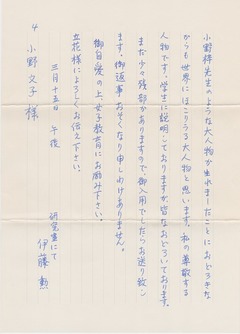 4
小野梓先生のような大人物が生れましたことにおどろきな
がらも世界にほこりうる大人物と思います。私の尊敬する
人物です。学生に説明しておりますが皆なおどろいております。
まだ少々残部がありますので、御入用でしたらお送り致し
ます。御返事おそくなり申しわけありません。
御自愛の上、女子教育にお励み下さい。
立花様によろしくお伝え下さい。
三月十五日 午後
研究室にて
伊藤 勲
小野文子様